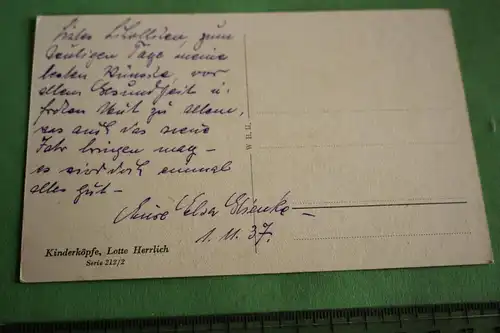 Liebes Lisollchen, zum
heutigen Tage meine
besten Wünsche, vor
allem Gesundheit u.
frohen Mut zu Allem,
was auch das neue
Jahr bringen mag –
es wird doch einmal
alles gut –
Eure Elsa Glienke –
1. 11. 37.
W. B. G.
Kinderköpfe, Lotte Herrlich
Serie 212/2